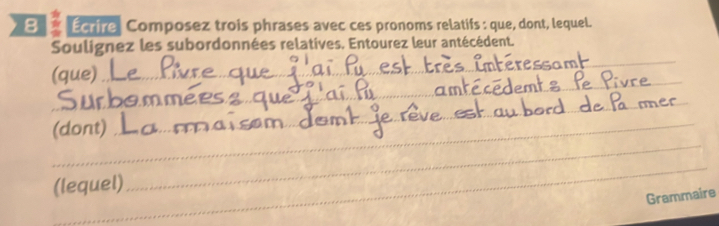 8 Écrire Composez trois phrases avec ces pronoms relatifs : que, dont, lequel.
Soulignez les subordonnées relatives. Entourez leur antécédent.
(que) Le livre que j'ai lu est très intéressamt
Surbommées : que j'ai lu amtécédemt : le livre
(dont) La maisom domt je rêve est au bord de la mer
(lequel)
Grammaire